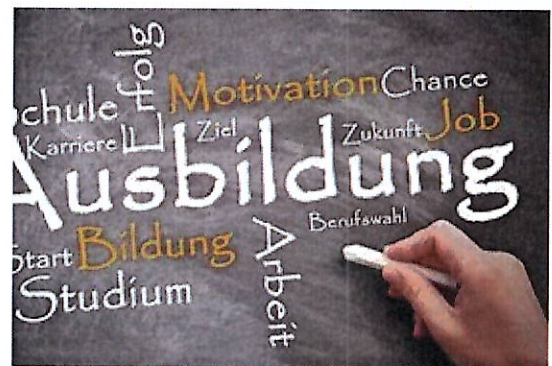 Erfolg
Motivation Chance
chule
Karriere Ziel Zukunft Job
Ausbildung
Berufswahl
Start Bildung
Arbeit
Studium